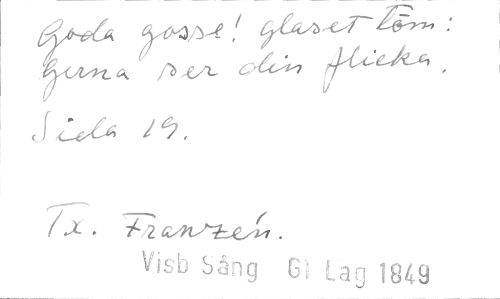 Goda gosse! glaset töm:
gerna ser din flicka.
Sida 19.
Tx. Franzén.
Visb Sång Gl Lag 1849